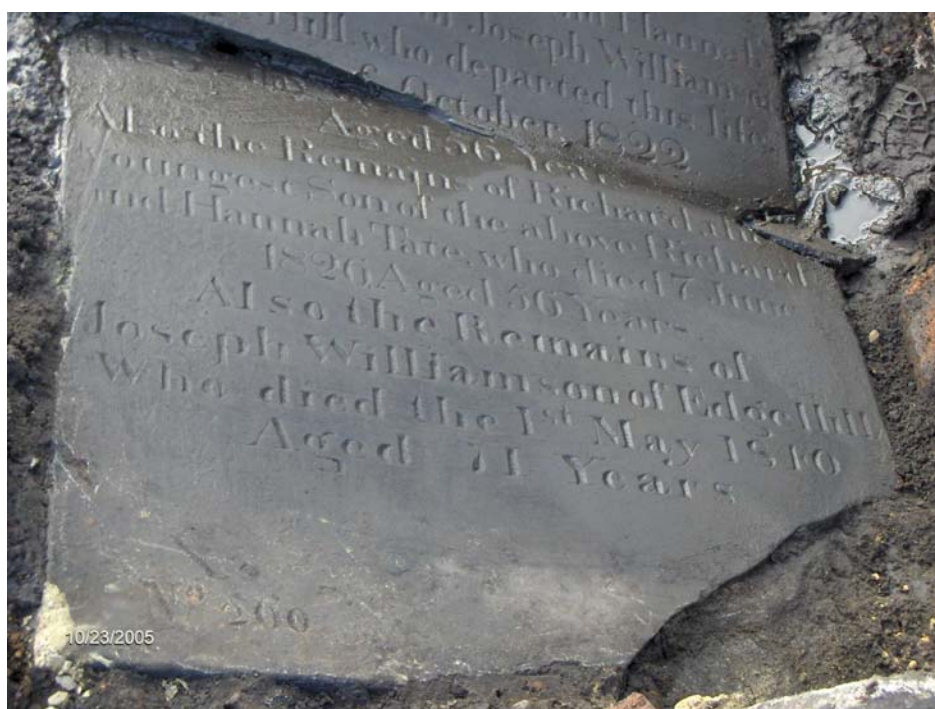 Hannah
of Joseph Williamson
Hill, who departed this life
the day of October, 1822
Aged 56 Years
Also the Remains of Richard, the
youngest Son of the above Richard
and Hannah Tate, who died 7 June
1826 Aged 56 Years
Also the Remains of
Joseph Williamson of Edge Hill,
Who died the 1st May 1840
Aged 71 Years
No 260
10/23/2005